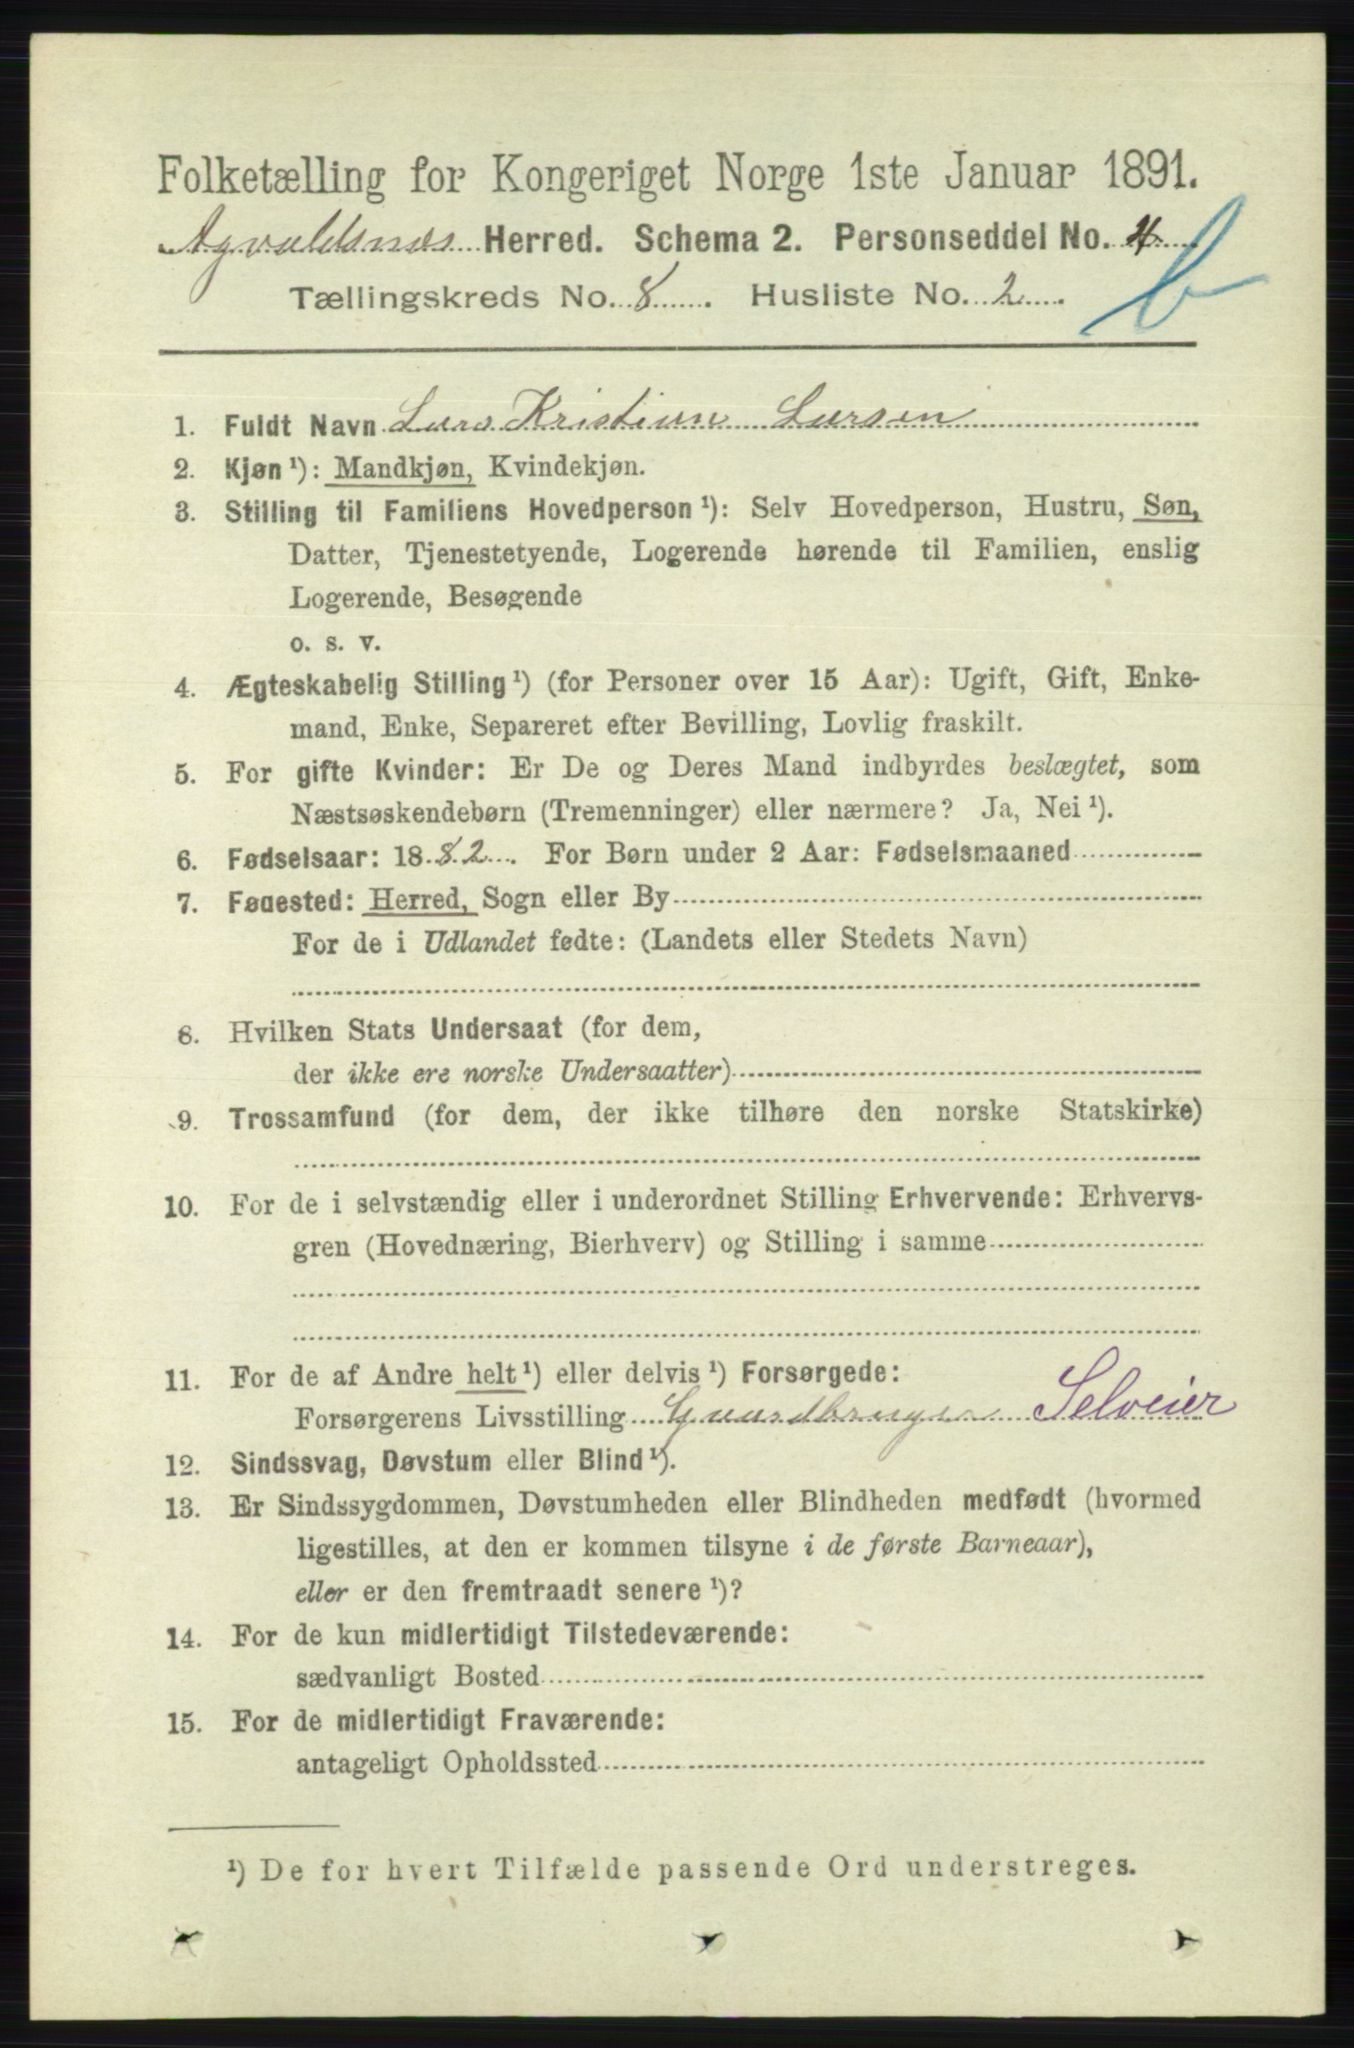 Folketælling for Kongeriget Norge 1ste Januar 1891.
Agvaldsnæs Herred. Schema 2. Personseddel No. 4
Tællingskreds No. 8. Husliste No. 2.
b
1. Fuldt Navn Lars Kristian Larsen
2. Kjøn ¹): Mandkjøn, Kvindekjøn.
3. Stilling til Familiens Hovedperson ¹): Selv Hovedperson, Hustru, Søn,
Datter, Tjenestetyende, Logerende hørende til Familien, enslig
Logerende, Besøgende
o. s. v.
4. Ægteskabelig Stilling ¹) (for Personer over 15 Aar): Ugift, Gift, Enke-
mand, Enke, Separeret efter Bevilling, Lovlig fraskilt.
5. For gifte Kvinder: Er De og Deres Mand indbyrdes beslægtet, som
Næstsøskendebørn (Tremenninger) eller nærmere? Ja, Nei ¹).
6. Fødselsaar: 1882. For Børn under 2 Aar: Fødselsmaaned
7. Fødested: Herred, Sogn eller By
For de i Udlandet fødte: (Landets eller Stedets Navn)
8. Hvilken Stats Undersaat (for dem,
der ikke ere norske Undersaatter)
9. Trossamfund (for dem, der ikke tilhøre den norske Statskirke)
10. For de i selvstændig eller i underordnet Stilling Erhvervende: Erhvervs-
gren (Hovednæring, Bierhverv) og Stilling i samme
11. For de af Andre helt ¹) eller delvis ¹) Forsørgede:
Forsørgerens Livsstilling Gaardbruger Selveier
12. Sindssvag, Døvstum eller Blind ¹).
13. Er Sindssygdommen, Døvstumheden eller Blindheden medfødt (hvormed
ligestilles, at den er kommen tilsyne i de første Barneaar),
eller er den fremtraadt senere ¹)?
14. For de kun midlertidigt Tilstedeværende:
sædvanligt Bosted
15. For de midlertidigt Fraværende:
antageligt Opholdssted
¹) De for hvert Tilfælde passende Ord understreges.